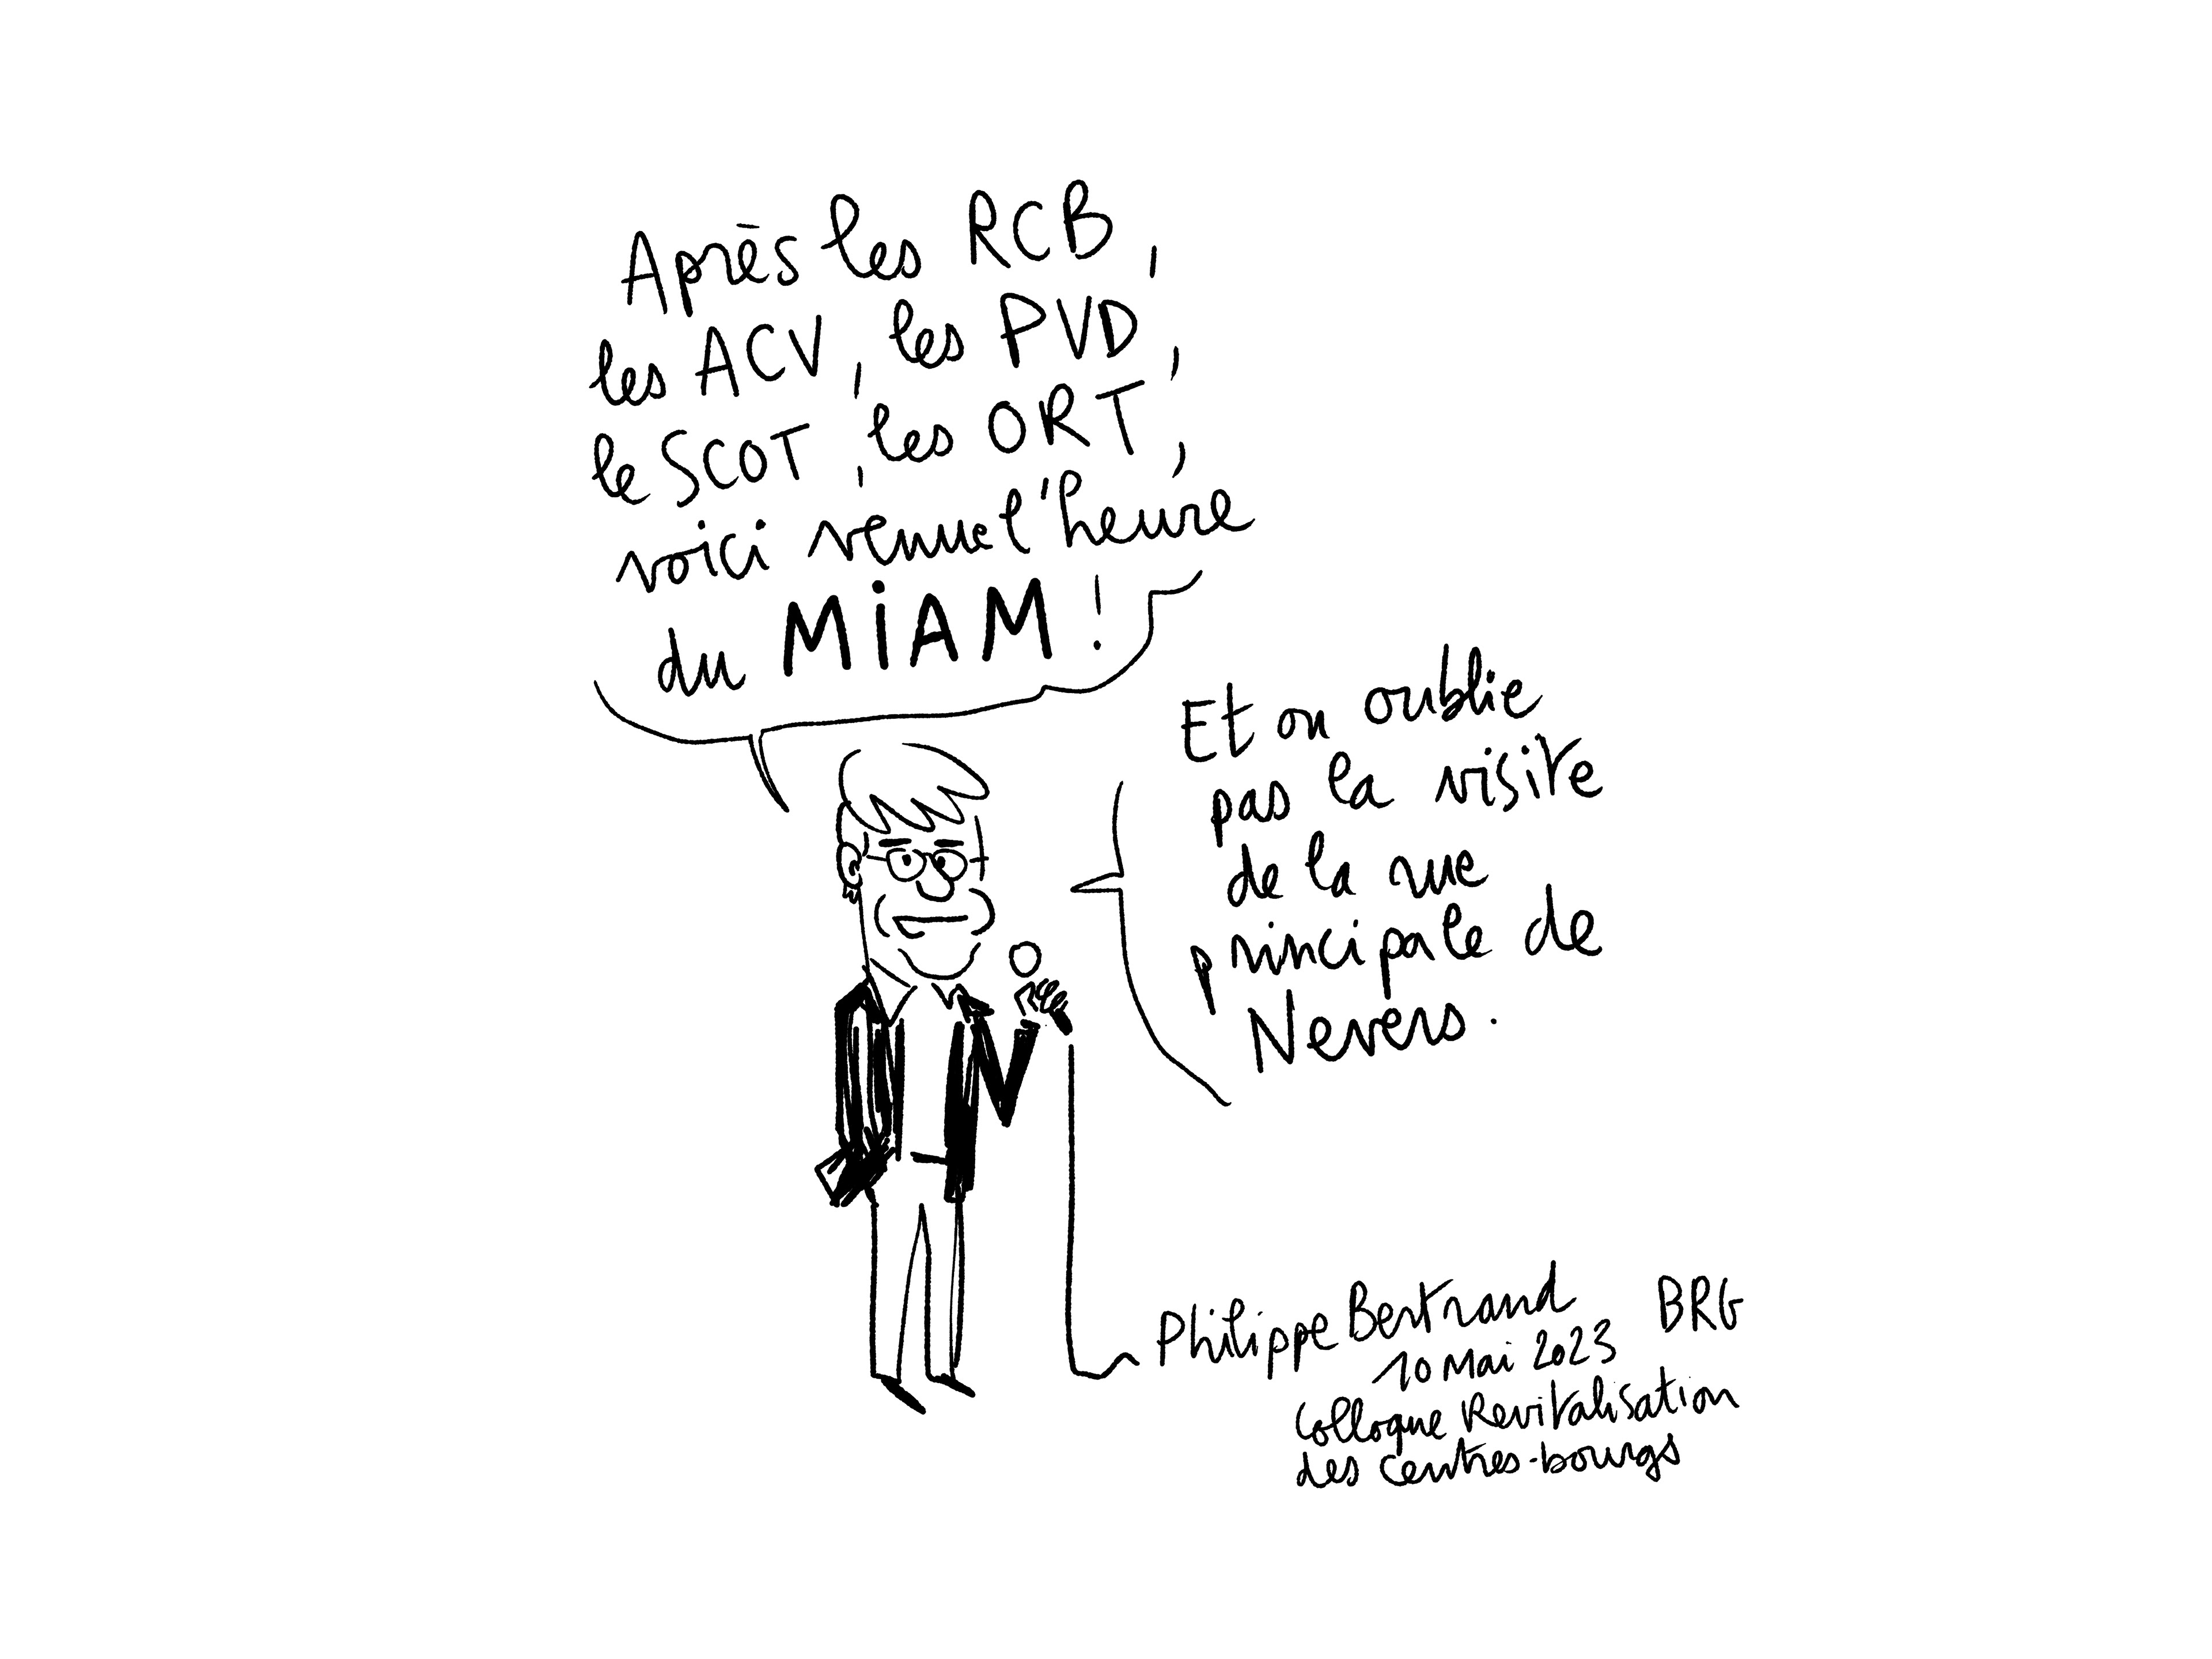 Après les RCB,
les ACV, les PVD,
le SCOT, les ORT,
voici venue l'heure
du MiAM !
Et on oublie
pas la visite
de la rue
principale de
Nevers.
Philippe Bertrand BRG
10 Mai 2023
Colloque Revitalisation
des centres-bourgs